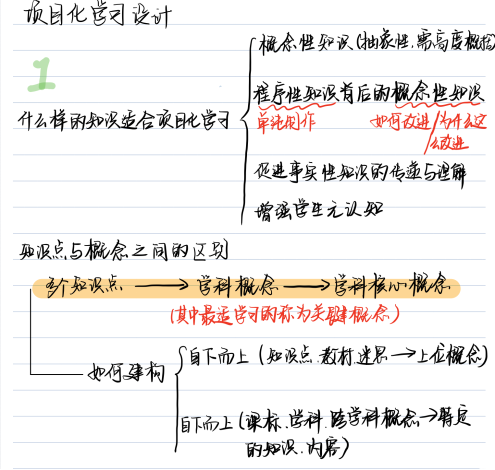 项目化学习设计
1
什么样的知识适合项目化学习
概念性知识(抽象性,需高度概括)
程序性知识背后的概念性知识
单纯制作 如何改进/为什么这
么改进
促进事实性知识的传递与理解
增强学生元认知
知识点与概念之间的区别
多个知识点 → 学科概念 → 学科核心概念
(其中最适学习的称为关键概念)
如何建构
自下而上(知识点.教材.迷思→上位概念)
自下而上(课标.学科.跨学科概念→特定
的知识.内容)